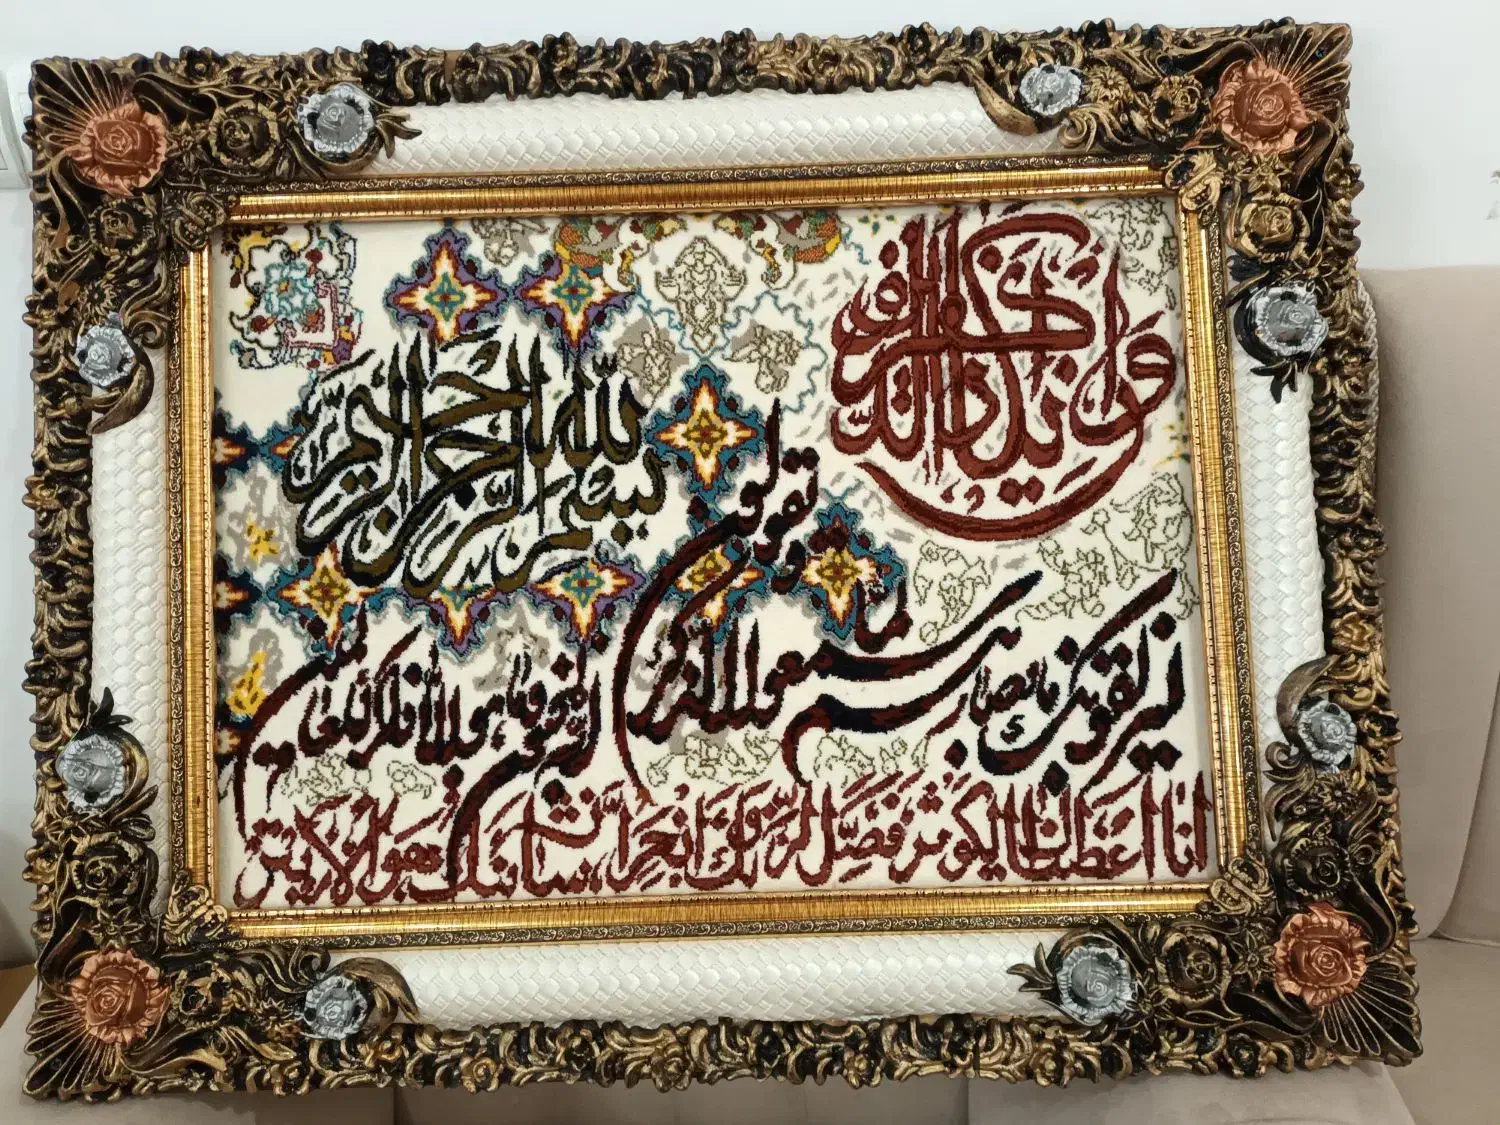 بسم الله الرحمن الرحیم
وان یکاد الذین کفروا
لیزلقونک بابصارهم لما سمعوا الذکر و یقولون انه لمجنون و ما هو الا ذکر للعالمین
انا اعطیناک الکوثر فصل لربک وانحر ان شانئک هو الابتر